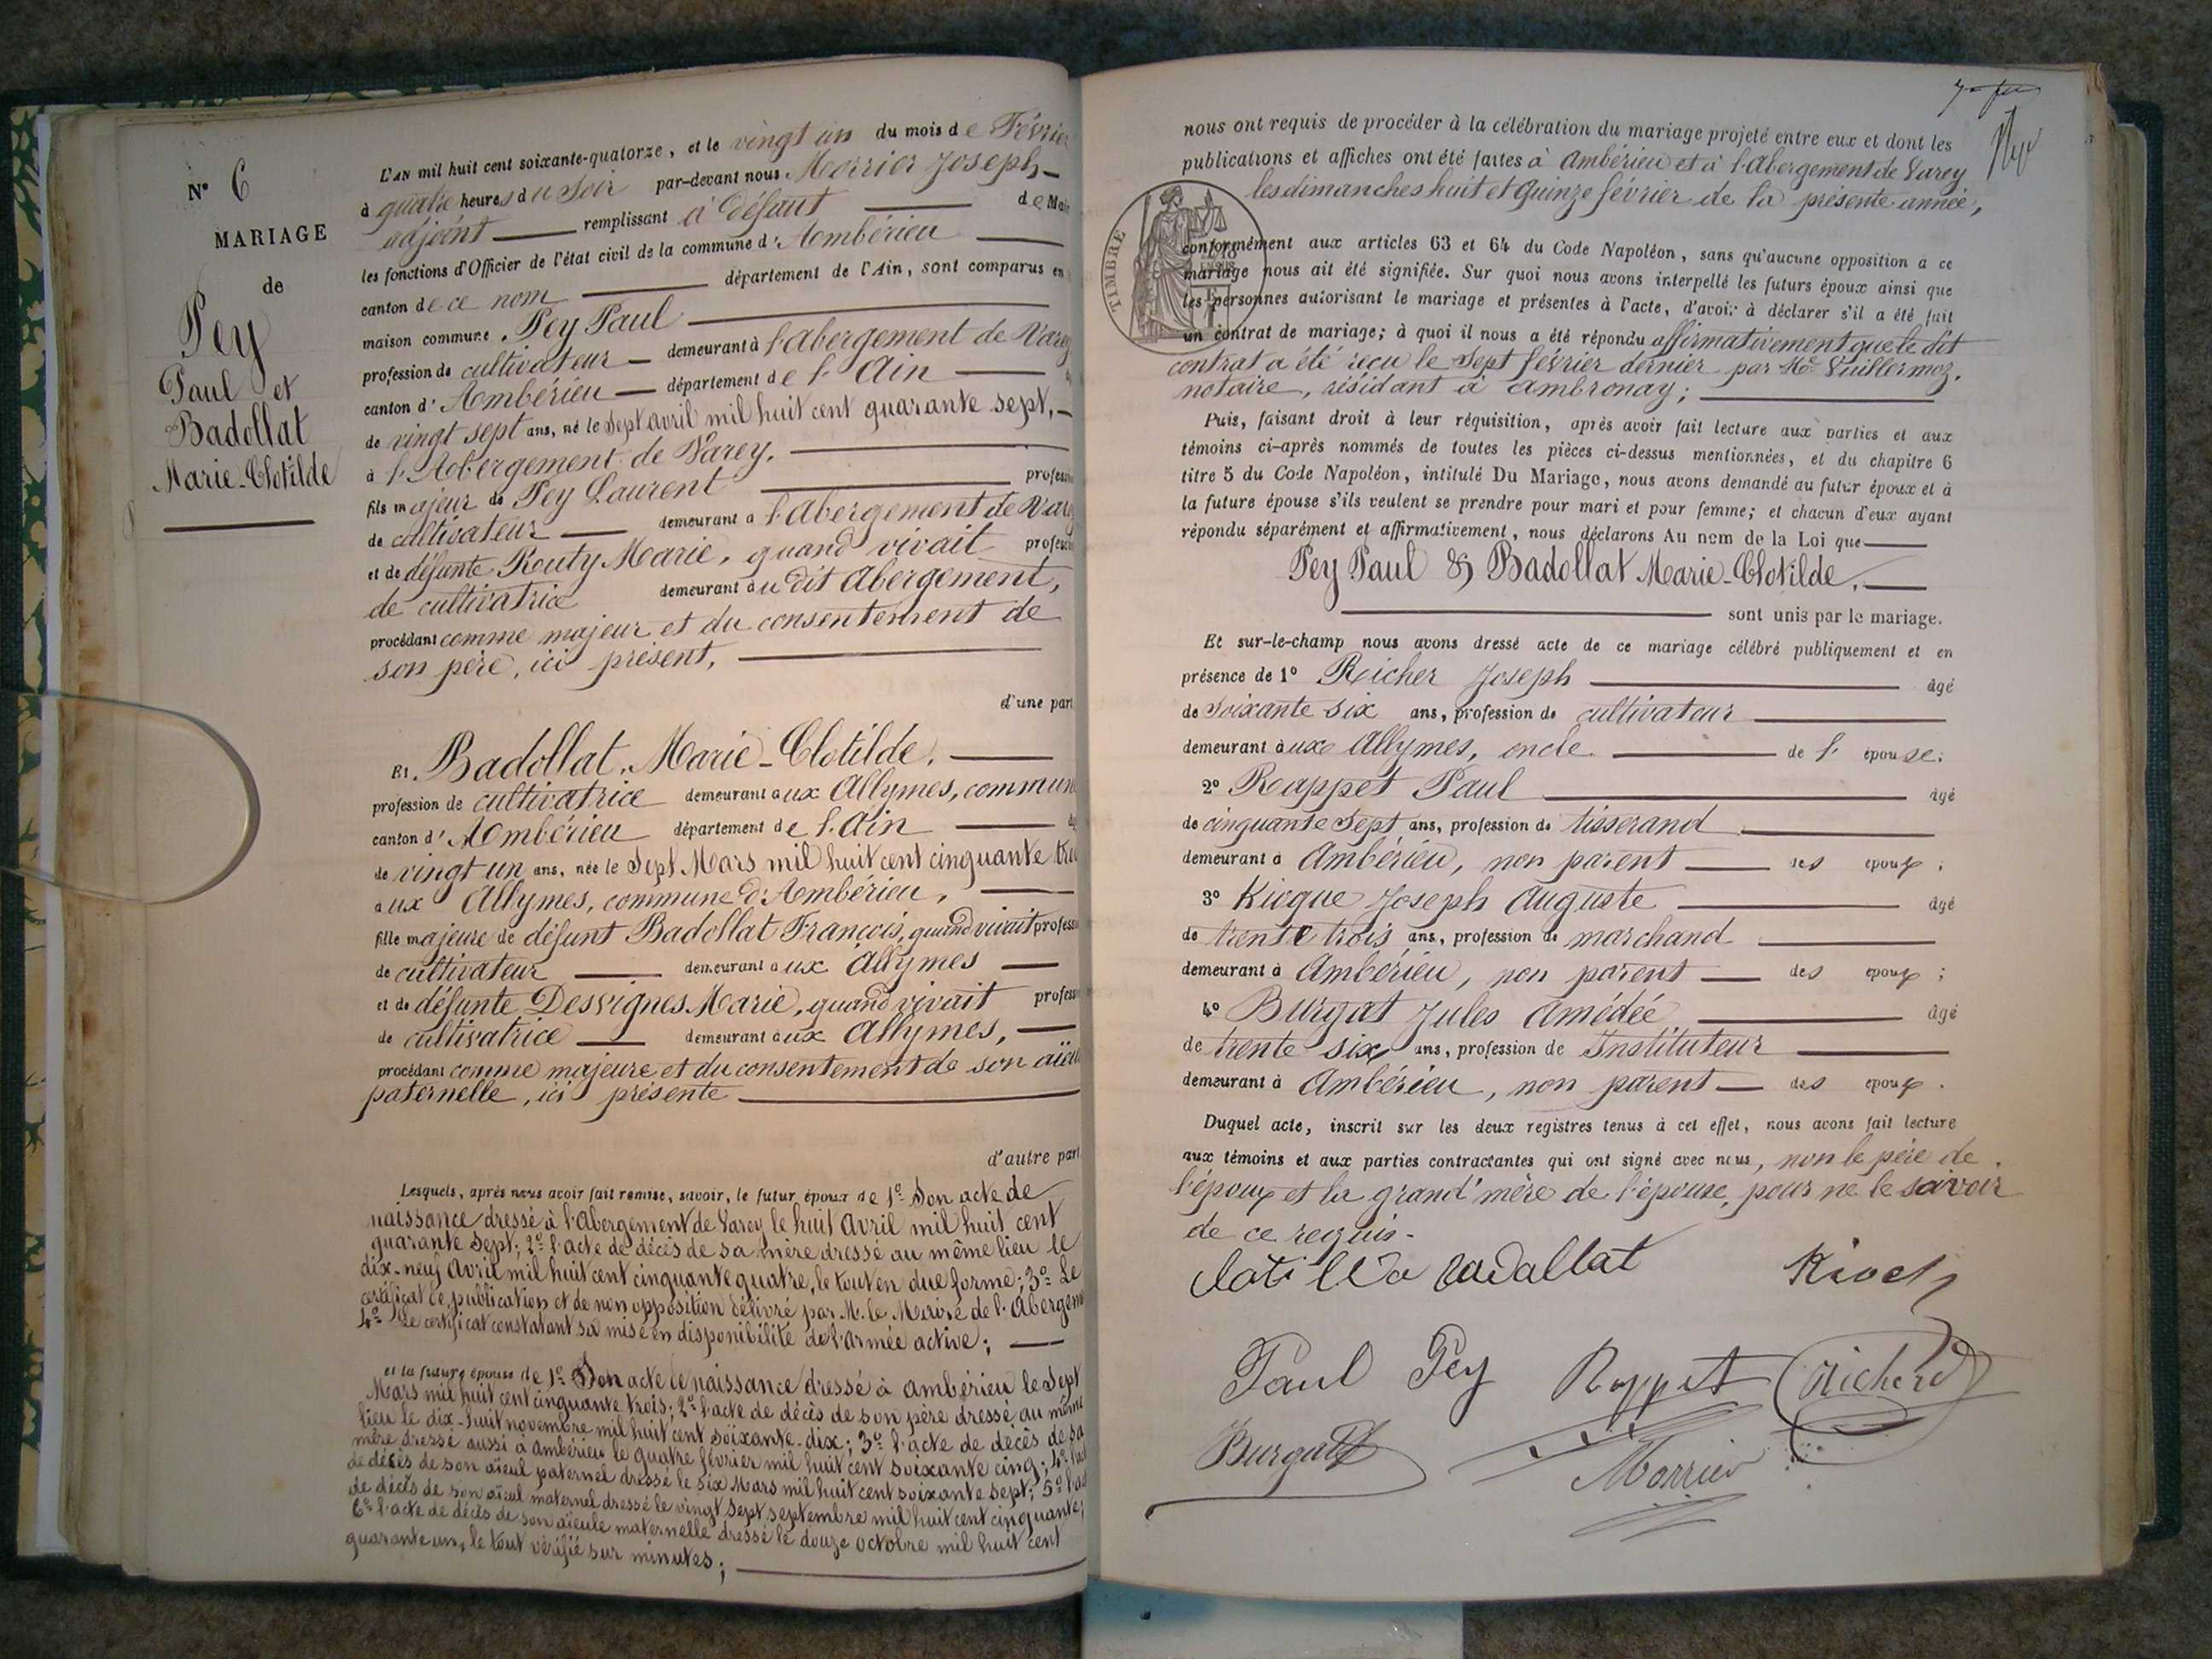 N° 6
MARIAGE
de
Pey
Paul et
Badollat
Marie-Clotilde
L'AN mil huit cent soixante-quatorze, et le vingt un du mois de Février
à quatre heures du Soir par-devant nous Morrier Joseph
adjoint remplissant à défaut de Mair
les fonctions d'Officier de l'état civil de la commune d'Ambérieu
canton de ce nom département de l'Ain, sont comparus en
maison commune, Pey Paul
profession de cultivateur demeurant à l'Abergement de Varey
canton d'Ambérieu département de l'Ain
de vingt sept ans, né le Sept avril mil huit cent quarante sept,
à l'Abergement de Varey.
fils majeur de Pey Laurent profession
de cultivateur demeurant à l'Abergement de Varey
et de défunte Routy Marie, quand vivait profession
de cultivatrice demeurant au dit Abergement,
procédant comme majeur et du consentement de
son père, ici présent,
d'une part
Et Badollat, Marie-Clotilde,
profession de cultivatrice demeurant aux Allymes, commune
canton d'Ambérieu département de l'Ain
de vingt un ans, née le Sept Mars mil huit cent cinquante trois
aux Allymes, commune d'Ambérieu,
fille majeure de défunt Badollat François, quand vivait profession
de cultivateur demeurant aux Allymes
et de défunte Desvignes Marie, quand vivait profession
de cultivatrice demeurant aux Allymes,
procédant comme majeure et du consentement de son aïeule
paternelle, ici présente
d'autre part.
Lesquels, après nous avoir fait remise, savoir, le futur époux de 1° Son acte de
naissance dressé à l'Abergement de Varey le huit Avril mil huit cent
quarante Sept; 2° l'acte de décès de sa mère dressé au même lieu le
dix-neuf Avril mil huit cent cinquante quatre, le tout en due forme; 3° Le
certificat de publication et de non opposition délivré par M. le Maire de l'Abergem
4° Le certificat constatant sa mise en disponibilité de l'armée active;
et la future épouse de 1° Son acte de naissance dressé à Ambérieu le Sept
Mars mil huit cent cinquante trois; 2° l'acte de décès de son père dressé au même
lieu le dix-huit novembre mil huit cent soixante-dix; 3° l'acte de décès de sa
mère dressé aussi à Ambérieu le quatre février mil huit cent soixante cinq; 4° l'act
de décès de son aïeul paternel dressé le six Mars mil huit cent soixante sept; 5° l'ac
de décès de son aïeul maternel dressé le vingt Sept septembre mil huit cent cinquante;
6° l'acte de décès de son aïeule maternelle dressé le douze octobre mil huit cent
quarante un, le tout vérifié sur minutes;
nous ont requis de procéder à la célébration du mariage projeté entre eux et dont les
publications et affiches ont été faites à Ambérieu et à l'Abergement de Varey
les dimanches huit et quinze février de la présente année,
TIMBRE
conformément aux articles 63 et 64 du Code Napoléon, sans qu'aucune opposition à ce
mariage nous ait été signifiée. Sur quoi nous avons interpellé les futurs époux ainsi que
les personnes autorisant le mariage et présentes à l'acte, d'avoir à déclarer s'il a été fait
un contrat de mariage; à quoi il nous a été répondu affirmativement que le dit
contrat a été reçu le Sept février dernier par Me Vuillermoz,
notaire, résidant à Ambronay;
Puis, faisant droit à leur réquisition, après avoir fait lecture aux parties et aux
témoins ci-après nommés de toutes les pièces ci-dessus mentionnées, et du chapitre 6
titre 5 du Code Napoléon, intitulé Du Mariage, nous avons demandé au futur époux et à
la future épouse s'ils veulent se prendre pour mari et pour femme; et chacun d'eux ayant
répondu séparément et affirmativement, nous déclarons Au nom de la Loi que
Pey Paul & Badollat Marie-Clotilde,
sont unis par le mariage.
Et sur-le-champ nous avons dressé acte de ce mariage célébré publiquement et en
présence de 1° Richer Joseph âgé
de Soixante six ans, profession de cultivateur
demeurant aux Allymes, oncle de l'épouse;
2° Rappet Paul âgé
de cinquante Sept ans, profession de tisserand
demeurant à Ambérieu, non parent des époux;
3° Kiogue Joseph Auguste âgé
de trente trois ans, profession de marchand
demeurant à Ambérieu, non parent des époux;
4° Burgat Jules Amédée âgé
de trente six ans, profession de Instituteur
demeurant à Ambérieu, non parent des époux.
Duquel acte, inscrit sur les deux registres tenus à cet effet, nous avons fait lecture
aux témoins et aux parties contractantes qui ont signé avec nous, non le père de
l'époux et la grand'mère de l'épouse, pour ne le savoir
de ce requis.
Paul Pey Rappet Richerd
Burgat
Morrier